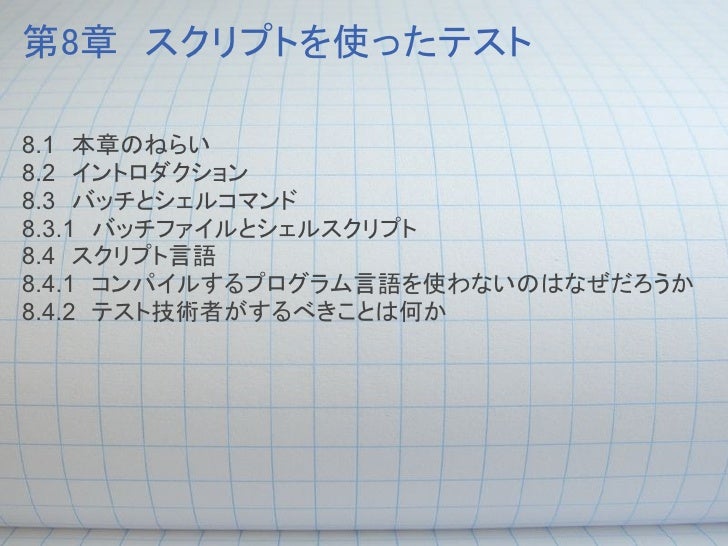 第8章　スクリプトを使ったテスト
8.1　本章のねらい
8.2　イントロダクション
8.3　バッチとシェルコマンド
8.3.1　バッチファイルとシェルスクリプト
8.4　スクリプト言語
8.4.1　コンパイルするプログラム言語を使わないのはなぜだろうか
8.4.2　テスト技術者がするべきことは何か